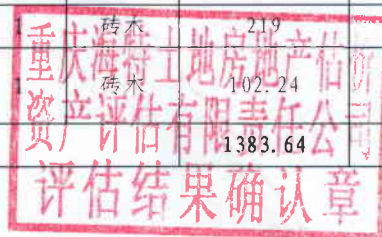 1 砖木 219
1 砖木 102.24
1383.64
重庆海特土地房地产估价
资产评估有限责任公司
评估结果确认章